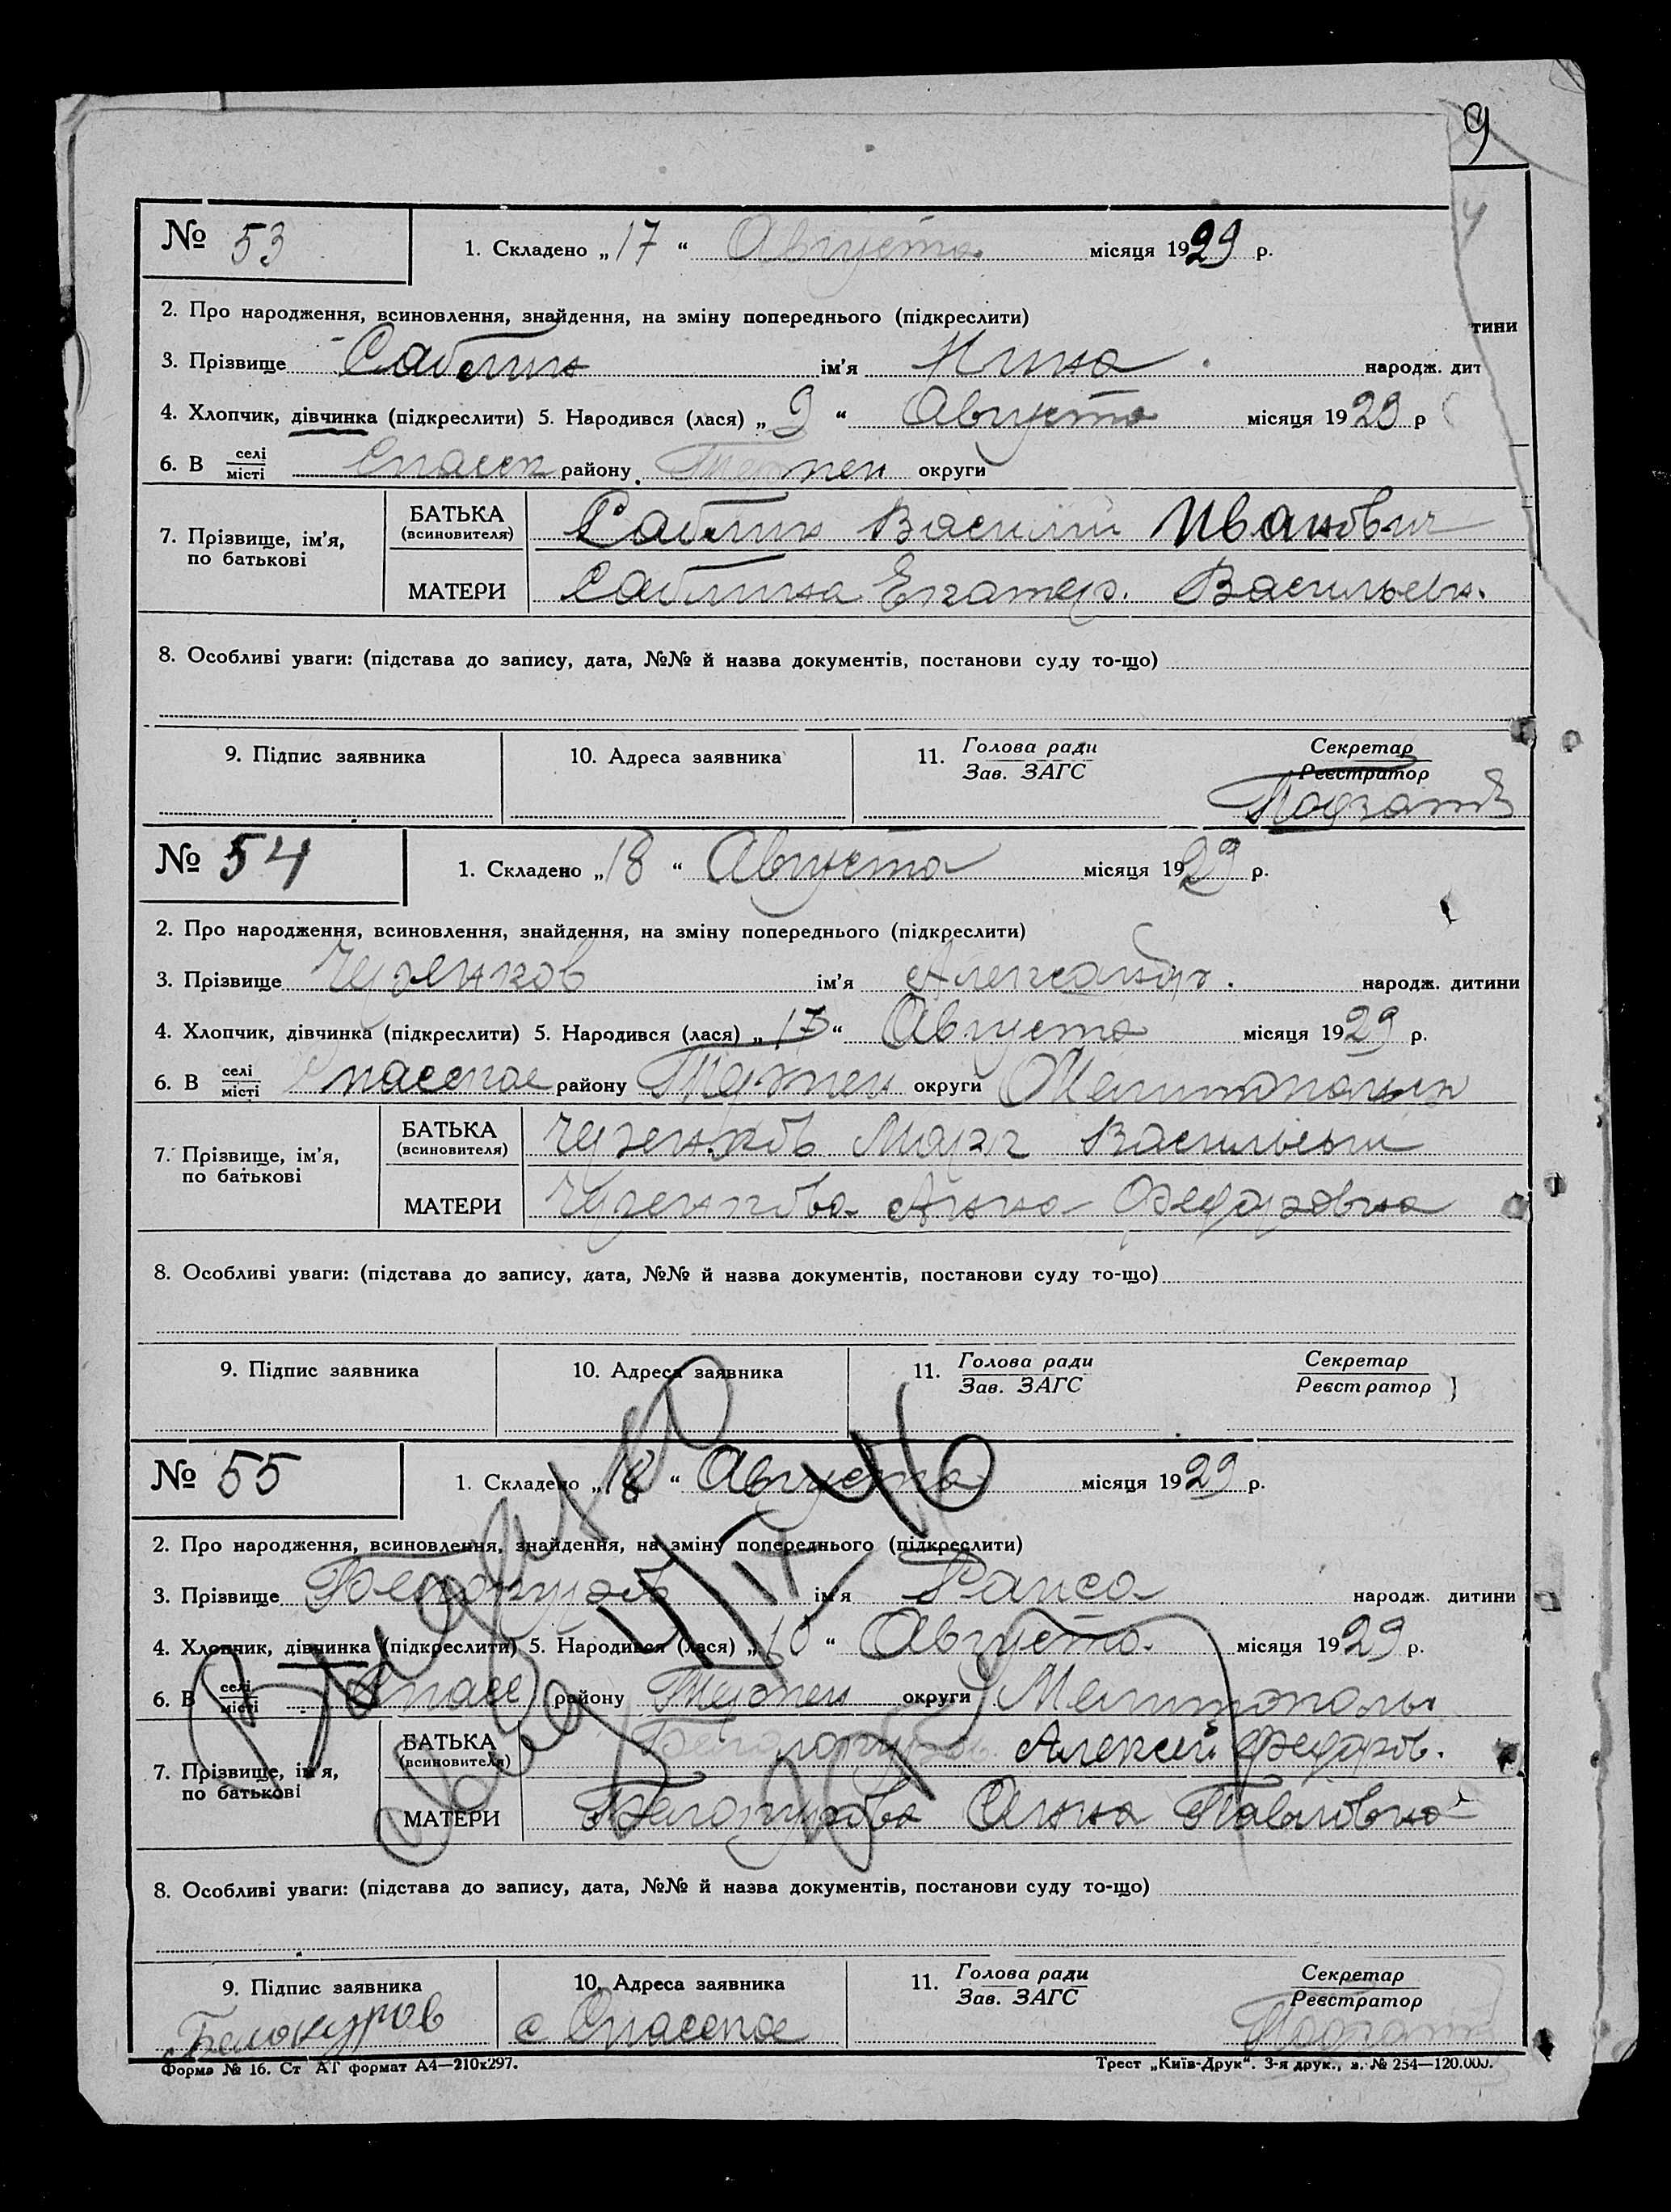 9
№ 53 1. Складено „17“ Августа місяця 1929 р.
2. Про народження, всиновлення, знайдення, на зміну попереднього (підкреслити)
тини
3. Прізвище Саблин ім'я Нина народж. дит
4. Хлопчик, дівчинка (підкреслити) 5. Народився (лася) „9“ Августа місяця 1929 р
6. В селі місті Спасск району Терпен округи
7. Прізвище, ім'я, по батькові БАТЬКА (всиновителя) Саблин Василий Иванович
МАТЕРИ Саблина Екатер. Васильевн.
8. Особливі уваги: (підстава до запису, дата, №№ й назва документів, постанови суду то-що)
9. Підпис заявника 10. Адреса заявника 11. Голова ради Зав. ЗАГС Секретар Реєстратор
№ 54 1. Складено „18“ Августа місяця 1929 р.
2. Про народження, всиновлення, знайдення, на зміну попереднього (підкреслити)
3. Прізвище ім'я Александр. народж. дитини
4. Хлопчик, дівчинка (підкреслити) 5. Народився (лася) „17“ Августа місяця 1929 р.
6. В селі місті Спасское району Терпен округи
7. Прізвище, ім'я, по батькові БАТЬКА (всиновителя) Марк Васильевич
МАТЕРИ Анна Федоровна
8. Особливі уваги: (підстава до запису, дата, №№ й назва документів, постанови суду то-що)
9. Підпис заявника 10. Адреса заявника 11. Голова ради Зав. ЗАГС Секретар Реєстратор
№ 55 1. Складено „18“ Августа місяця 1929 р.
2. Про народження, всиновлення, знайдення, на зміну попереднього (підкреслити)
3. Прізвище Белокуров ім'я Раиса народж. дитини
4. Хлопчик, дівчинка (підкреслити) 5. Народився (лася) „10“ Августа. місяця 1929 р.
6. В селі місті Спасс району Терпен округи Мелитополь
7. Прізвище, ім'я, по батькові БАТЬКА (всиновителя) Белокуров Алексей Федоров.
МАТЕРИ Белокурова Анна Павловна
8. Особливі уваги: (підстава до запису, дата, №№ й назва документів, постанови суду то-що)
9. Підпис заявника 10. Адреса заявника 11. Голова ради Зав. ЗАГС Секретар Реєстратор
Белокуров с Спасское
Форма № 16. Ст АГ формат А4—210х297. Трест „Київ-Друк“. 3-я друк., з. № 254—120.000.